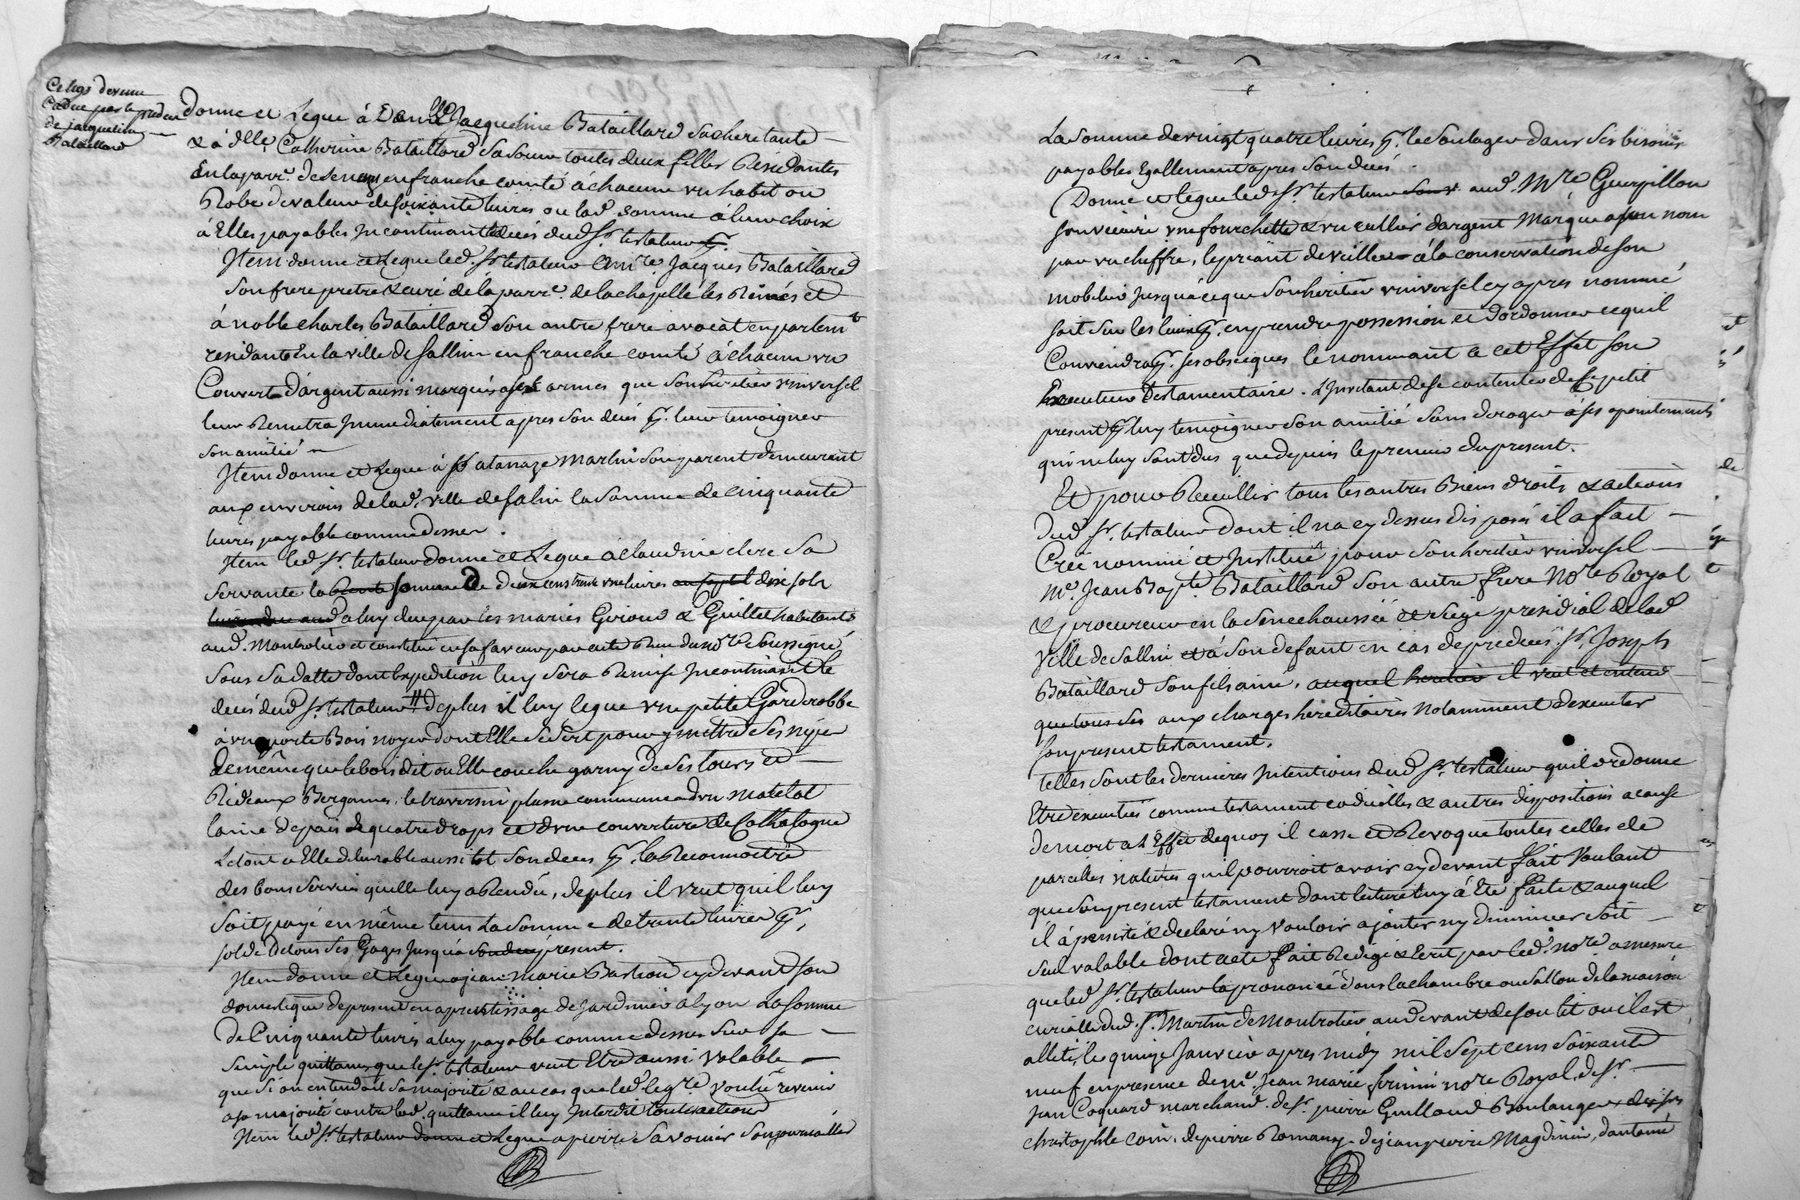 Ce legs devenu
Caduc par le predecès
de jacqueline
Bataillard
donne et Legue à Dam.lle Jacqueline Bataillard sa chere tante
& à dlle. Catherine Bataillard sa soeur toutes deux filles Residantes
En la parr.e de en franche comté à chacune un habit ou
Robe de valeur de soixante livres ou lad. somme à leur choix
à Elles payables Incontinant le décès dud. Sr. testateur
Item donne et Legue led. Sr. testateur à m.re Jacques Bataillard
son frere pretre & curé de la parr.e de la chapelle les Rennes et
à noble charles Bataillard son autre frere avocat en parlem.t
residants En la ville de Sallin en franche comté à chacun un
Couvert d'argent aussi marqués a ses armes que son heritier universel
leur Remetra Immediatement apres son décès pr. leur temoigner
son amitié
Item donne et Legue à Sr. atanaze martin son parent demeurant
aux environs de lad. ville de salin la somme de cinquante
livres payable comme dessus.
Item led. Sr. testateur donne et Legue à claudine clerc sa
servante la somme de deux cens trente une livres dix sols
a luy due par les mariés Giroud & Guillet habitants
aud. Montrotier et constitué en sa faveur par acte Reçu du no.re soussigné
sous sa datte dont Expedition luy sera Remise Incontinant le
décès dud. Sr. testateur # de plus il luy legue une petite Garderobbe
à une porte Bois noyer dont Elle se sert pour y mettre ses nipes
de même que le bois de lit ou Elle couche garny de ses tours et
Rideaux Bergames, le traversin plume commune d'un matelat
laine de pais de quatre draps et d'une couverture de Cathalogne
Le tout a Elle delivrable aussitot son deces pr. la Reconnoitre
des bons services qu'elle luy a Rendu, de plus il veut qu'il luy
soit payé en même tems La somme de trente livres pr.
solde de tous ses Gages jusqu'a present.
Item donne et Legue a jean marie Bastion cy devant son
domestique de present en aprentissage de Jardinier a lyon La somme
de Cinquante livres a luy payable comme dessus sur sa
simple quittance que le Sr. testateur veut Etre aussi valable
que si on entendoit sa majorité & au cas que led. leg.re voulu revenir
a sa majorité contre lad. quittance il luy Interdit toutes actions
Item led. Sr. testateur donne et Legue a pierre Savonier son journallier
La somme de vingt quatre livres pr. le soulager dans ses besoins
payables Egallement apres son décès
Donne et legue led. Sr. testateur aud. M.re Guerpillon
son vicaire une fourchette & un cuillier d'argent Marqué a son nom
par un cheffre, le priant de veiller à la conservation de son
mobilier jusqu'a ce que son heritier universel cy apres nommé
soit sur les lieux pr. en prendre possession et d'ordonner ce qu'il
Conviendra pr. ses obseques le nommant a cet Effet son
Executeur Testamentaire. L'invitant de se contenter de ce petit
present pr. luy temoigner son amitié sans deroger à ses apointements
qui ne luy sont dus que depuis le premier du present.
Et pour Recullir tous les autres Biens droits & actions
dud. Sr. testateur dont il n'a cy dessus disposé il a fait
Créé nommé et Institué pour son heritier universel
m.e Jean Bap.te Bataillard son autre frere No.re Royal
& procureur en la senechaussée et siege presidial de lad.
ville de Sallin et à son defaut en cas de predecès Sr. Joseph
Bataillard son fils ainé, auquel heritier il veut et entend
que tous ses aux charges héréditaires notamment d'executer
son present testament.
telles sont les dernieres Intentions dud. Sr. testateur qu'il ordonne
Etre executées comme testament codicilles & autres dispositions a cause
de mort a l'Effet de quoy il casse et Revoque toutes celles de
pareilles natures qu'il pourroit avoir cy devant fait voulant
que son present testament dont lecture luy à Eté faite & auquel
il à persisté & declaré n'y vouloir ajouter ny diminuer soit
seul valable dont acte fait Redigé & Ecrit par led. no.re a mesure
que led. Sr. testateur l'a prononcé dans la chambre ou sallon de la maison
curialle dud. St. Martin de Montrotier au devant de son lit ou il est
alleté, le quinze Janvier apres midy mil sept cens soixante
neuf en presence de m.e Jean marie no.re Royal, de Sr.
jean Coquard marchand. de Sr. pierre Guilloud Boulanger
christophle coin. de pierre Romany. de jean pierre Magdinin, d'antoine